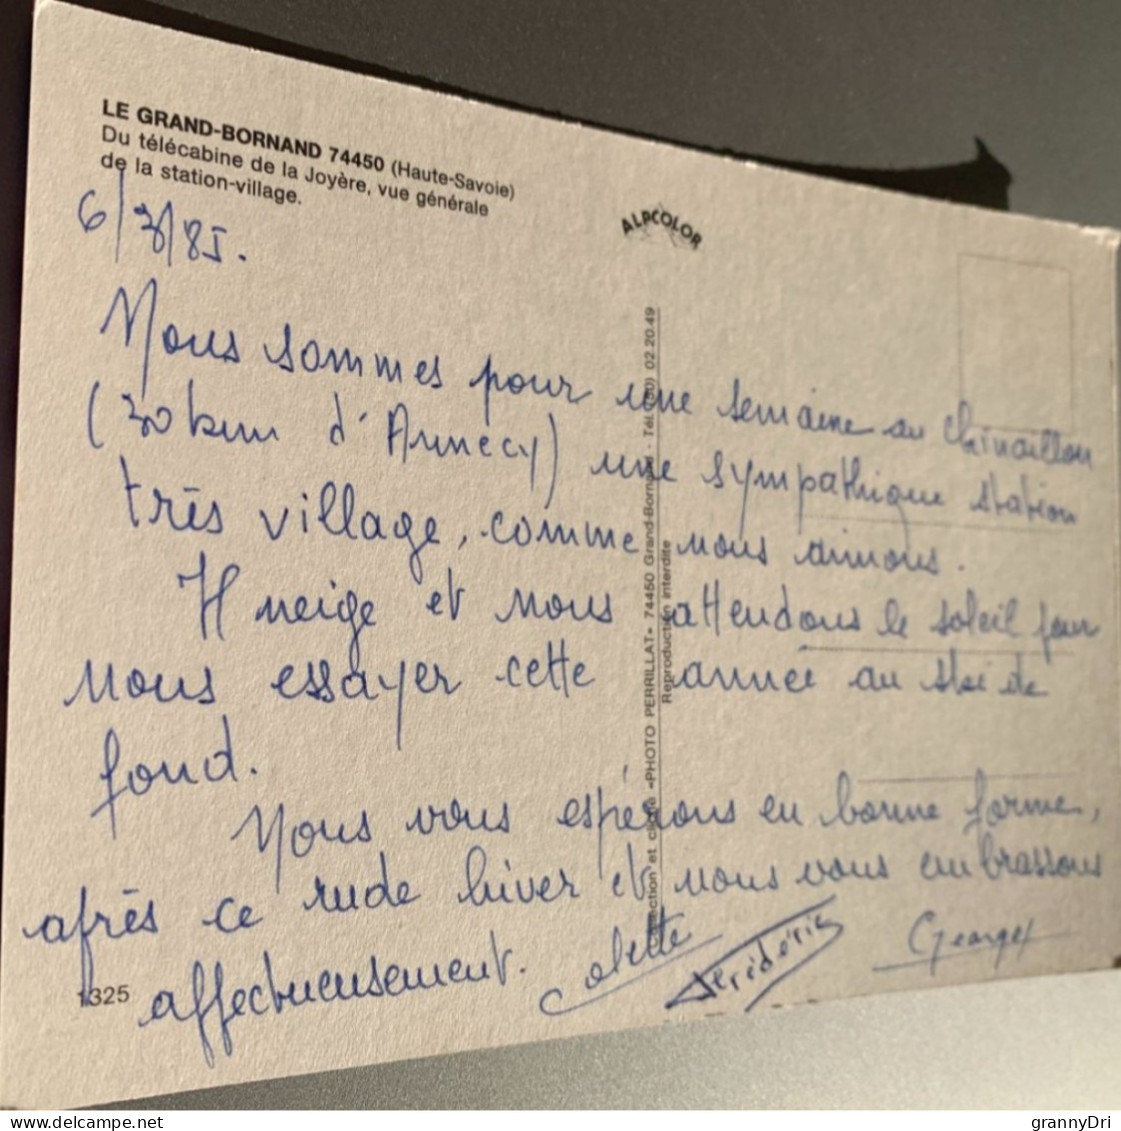 LE GRAND-BORNAND 74450 (Haute-Savoie)
Du télécabine de la Joyère, vue générale
de la station-village.
ALPCOLOR
6/3/85.
Nous sommes pour une semaine au Chinaillon
(30 km d'Annecy) une sympathique station
très village, comme nous aimons.
Il neige et nous attendons le soleil pour
nous essayer cette année au ski de
fond.
Nous vous espérons en bonne forme,
après ce rude hiver et nous vous embrassons
affectueusement.
Colette Frédéric Georges
1325
Collection et cliché «PHOTO PERRILLAT» 74450 Grand-Bornand - Tél. (50) 02.20.49
Reproduction interdite
delcampe.net
grannyDri